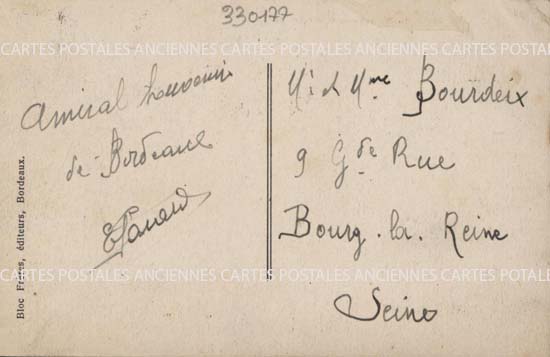 330177
CARTES POSTALES ANCIENNES CARTES POSTALES ANCIENNES CARTES POSTALES ANCIENNES
Amical Souvenir
de Bordeaux
Mr & Mme Bourdeix
9 Gde Rue
Bourg. la. Reine
Seine
CARTES POSTALES ANCIENNES CARTES POSTALES ANCIENNES CARTES POSTALES ANCIENNES
Bloc Frères, éditeurs, Bordeaux.